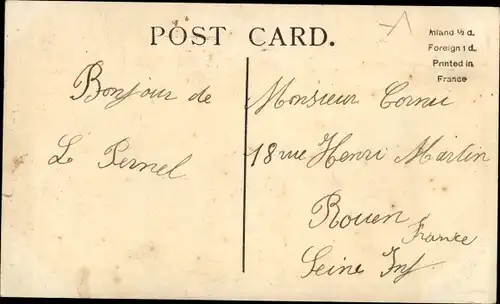 POST CARD.
Inland ½ d.
Foreign 1 d.
Printed in
France
Bonjour de
L Pernel
Monsieur Cornu
18 rue Henri Martin
Rouen
France
Seine Inf